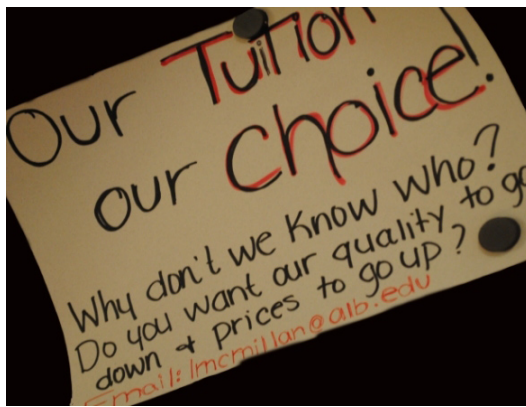 Our Tuition
our Choice!
Why don't we Know Who?
Do you want our quality to go
down & prices to go up?
Email: lmcmillan@alb.edu